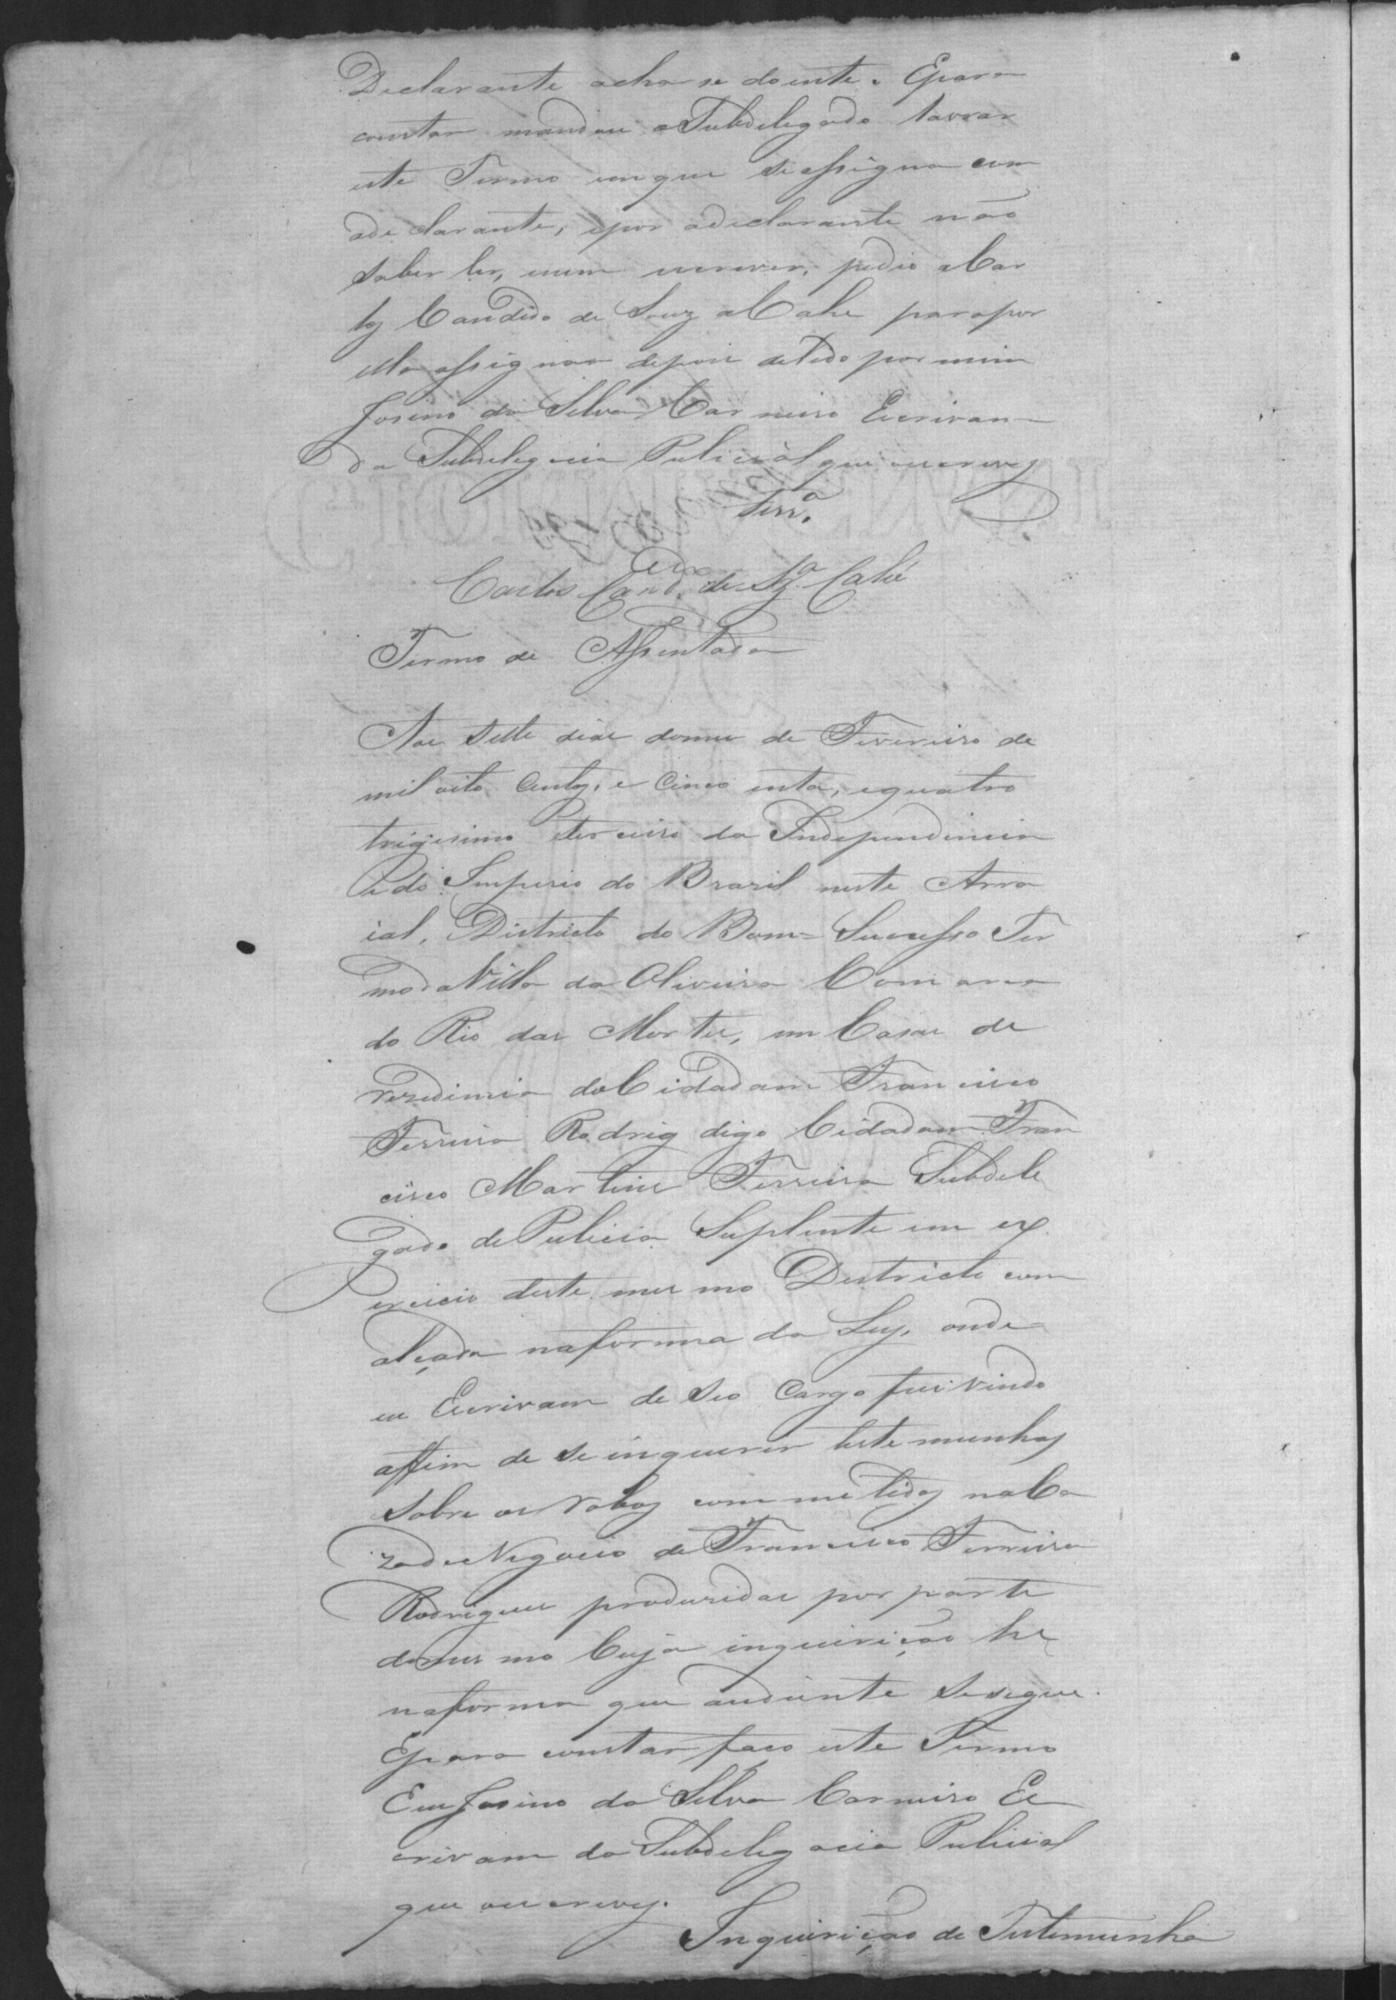 Declarante acha se doente. Epara
constar mandou o Subdelegado lavrar
este Termo em que se assigna com
ade clarante, epor adeclarante não
saber ler, nem escrever, pedio a Car
los Candido de Souz a Cahe para por
ella assignar depois de lido por mim
Josino da Silva Carneiro Escrivan
da Subdelegacia Policial que oescrevy
Ferrª
Carlos Cand. de Szª Cahé
Termo de Assentada
Aos sette dias domes de Fevereiro de
mil oito centos, e cinco enta, equatro
trigesimo eterceiro da Independencia
edo Imperio do Brazil neste Arra
ial, Districto do Bom Sucesso Ter
mo da Villa da Oliveira Comarca
do Rio das Mortes, em Casas de
rezidencia do Cidadam Francisco
Ferreira Rodrig digo Cidadam Fran
cisco Martins Ferreira Subdele
gado de Policia Suplente em ex
ercicio deste mes mo Destricto com
alçada naforma da Ley, onde
eu Escrivam de seo Cargo fui vindo
affim de se inquerir testemunhas
sobre os robos com metidos na Ca
za de Negocio de Francisco Ferreira
Rodrigues produzidas por parte
domes mo Cuja inquirição he
naforma que audiante sesegue.
Epara constar faço este Termo
Eu Josino da Silva Carneiro Es
crivam da Subdelegacia Policial
que oescrevy.
Inquirição de Testemunha